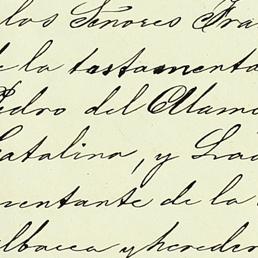 los Señores Fra
e la testamenta
Pedro del Alamo
Catalina, y Lad
mentante de la
albacea y hereder